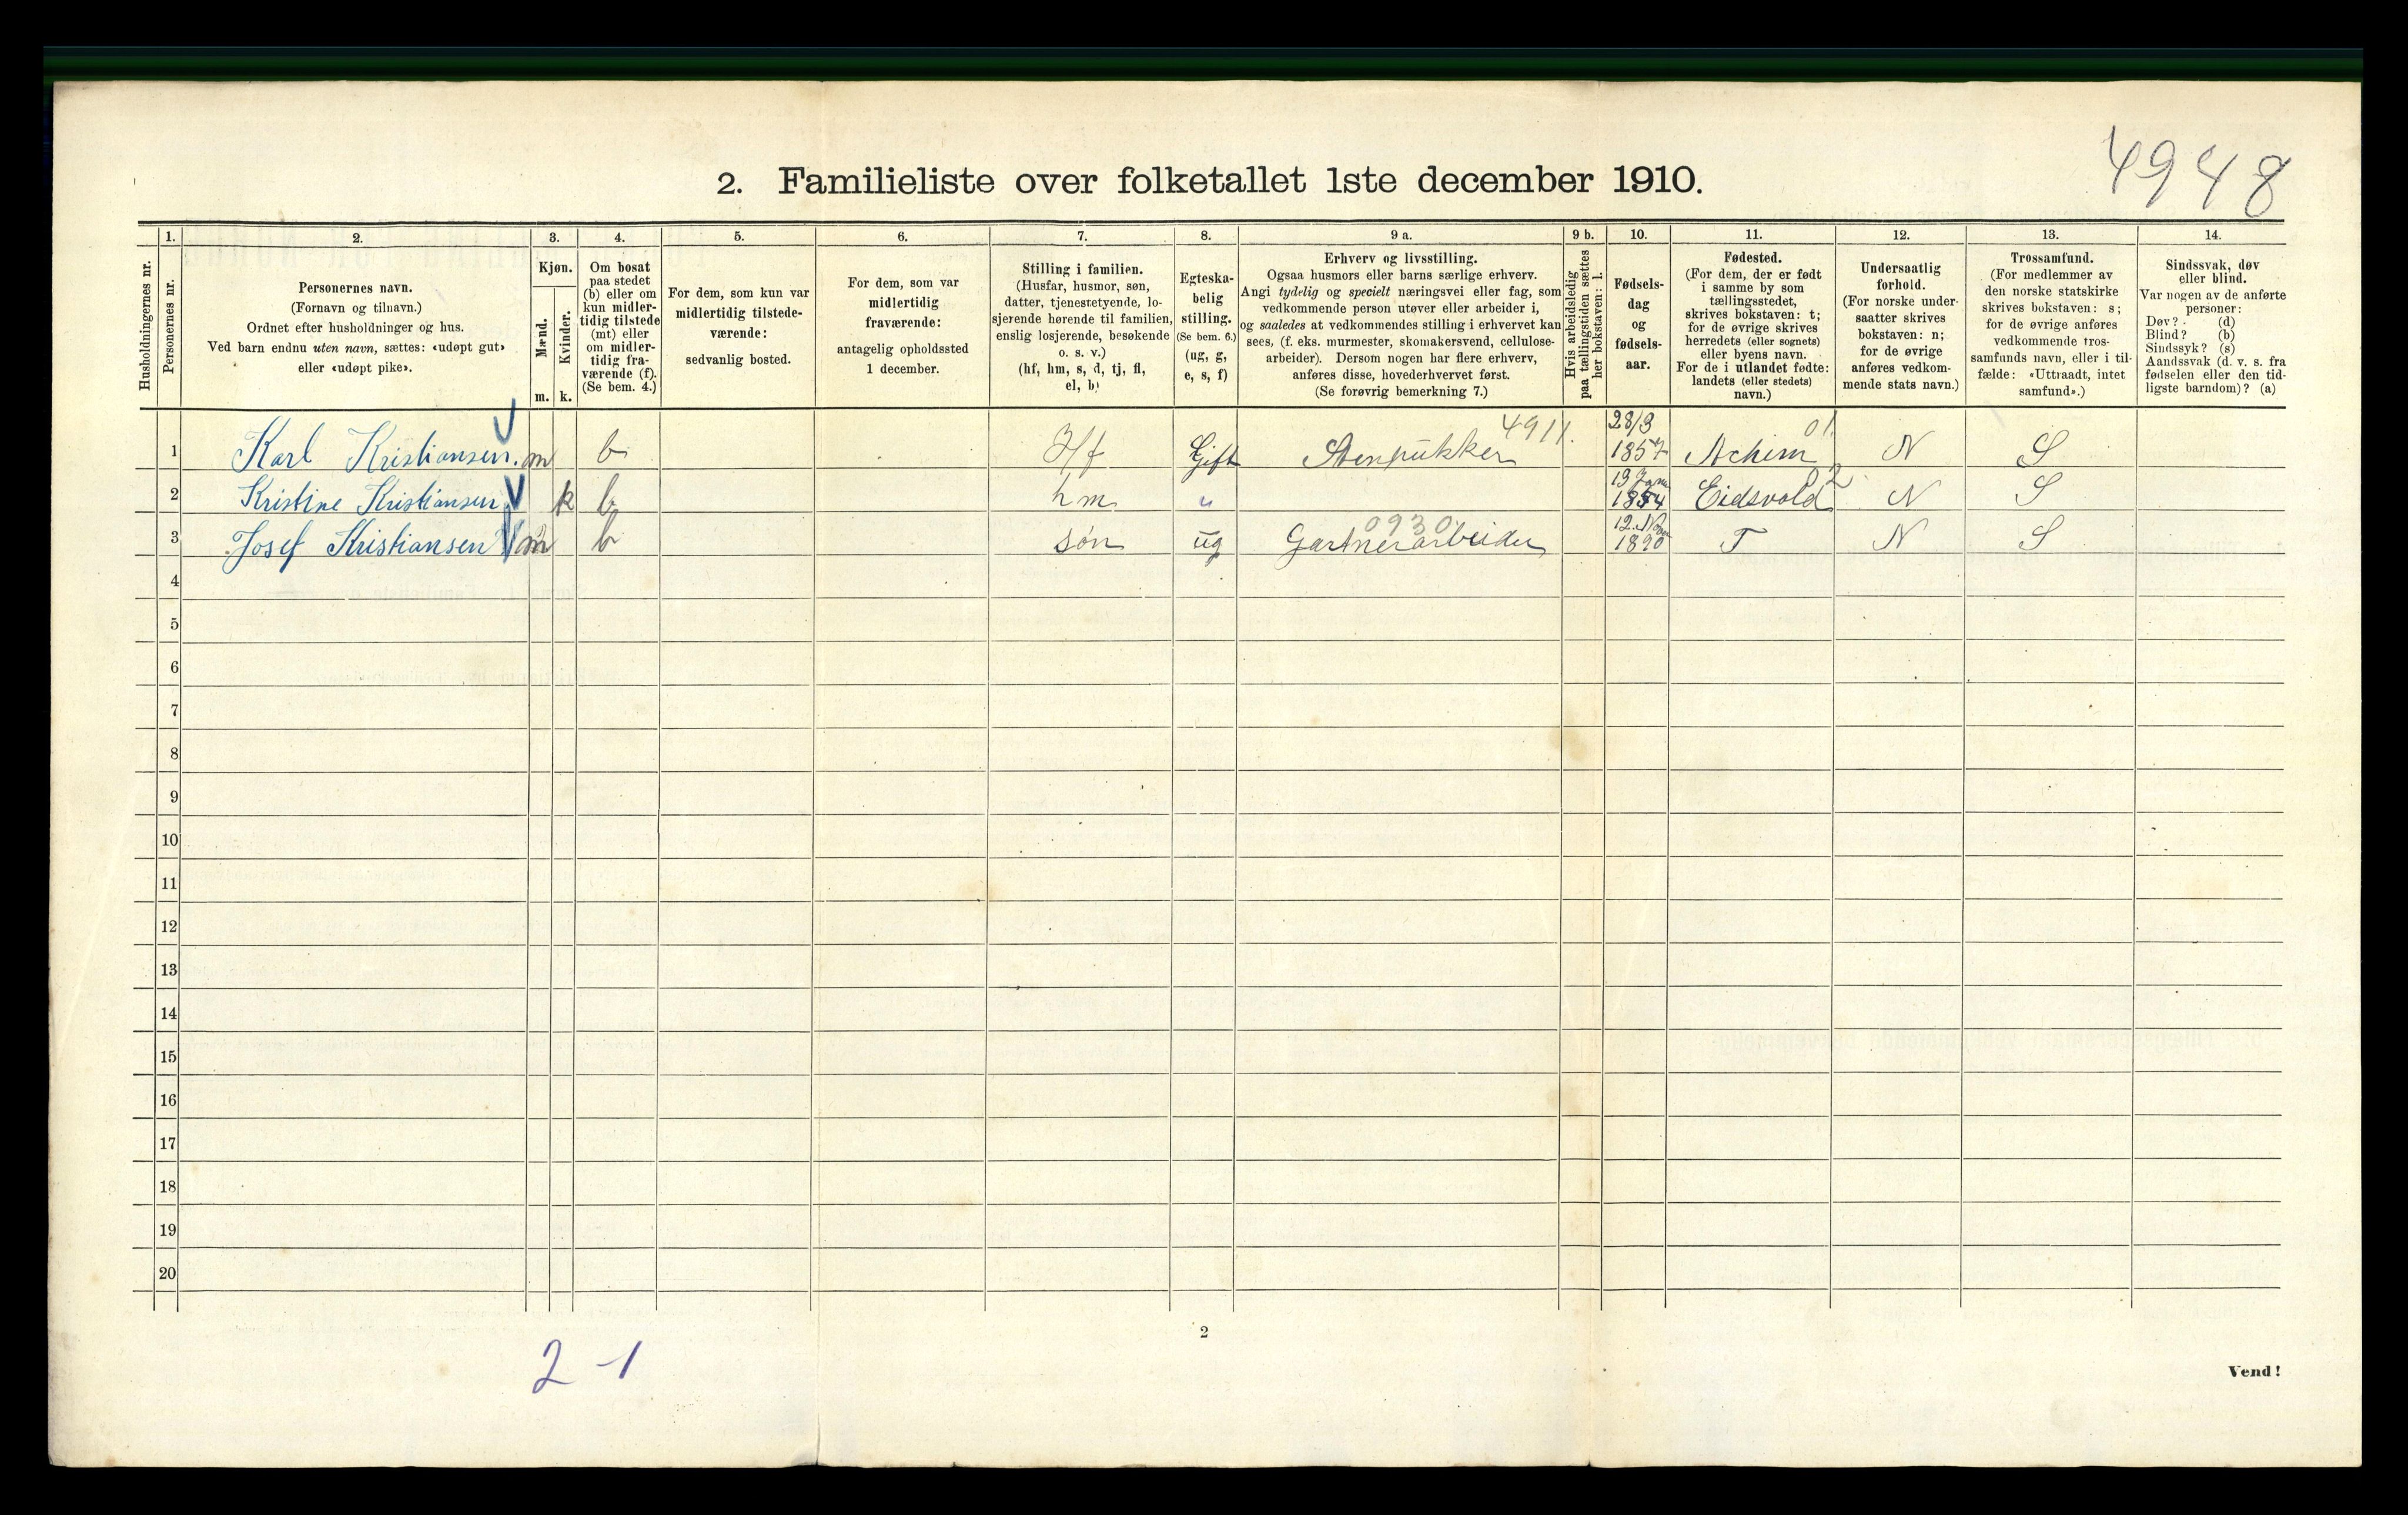 4948
2. Familieliste over folketallet 1ste december 1910.
Husholdningernes nr.
1.
Personernes nr.
2.
Personernes navn.
(Fornavn og tilnavn.)
Ordnet efter husholdninger og hus.
Ved barn endnu uten navn, sættes: «udøpt gut»
eller «udøpt pike».
3.
Kjøn.
Mænd.
m.
Kvinder.
k.
4.
Om bosat
paa stedet
(b) eller om
kun midler-
tidig tilstede
(mt) eller
om midler-
tidig fra-
værende (f).
(Se bem. 4.)
5.
For dem, som kun var
midlertidig tilstede-
værende:
sedvanlig bosted.
6.
For dem, som var
midlertidig
fraværende:
antagelig opholdssted
1 december.
7.
Stilling i familien.
(Husfar, husmor, søn,
datter, tjenestetyende, lo-
sjerende hørende til familien,
enslig losjerende, besøkende
o. s. v.)
(hf, hm, s, d, tj, fl,
el, b)
8.
Egteska-
belig
stilling.
(Se bem. 6.)
(ug, g,
e, s, f)
9 a.
Erhverv og livsstilling.
Ogsaa husmors eller barns særlige erhverv.
Angi tydelig og specielt næringsvei eller fag, som
vedkommende person utøver eller arbeider i,
og saaledes at vedkommendes stilling i erhvervet kan
sees, (f. eks. murmester, skomakersvend, cellulose-
arbeider). Dersom nogen har flere erhverv,
anføres disse, hovederhvervet først.
(Se forøvrig bemerkning 7.)
9 b.
Hvis arbeidsledig
paa tællingstiden sættes
her bokstaven: l.
10.
Fødsels-
dag
og
fødsels-
aar.
11.
Fødested.
(For dem, der er født
i samme by som
tællingsstedet,
skrives bokstaven: t;
for de øvrige skrives
herredets (eller sognets)
eller byens navn.
For de i utlandet fødte:
landets (eller stedets)
navn.)
12.
Undersaatlig
forhold.
(For norske under-
saatter skrives
bokstaven: n;
for de øvrige
anføres vedkom-
mende stats navn.)
13.
Trossamfund.
(For medlemmer av
den norske statskirke
skrives bokstaven: s;
for de øvrige anføres
vedkommende tros-
samfunds navn, eller i til-
fælde: «Uttraadt, intet
samfund».)
14.
Sindssvak, døv
eller blind.
Var nogen av de anførte
personer:
Døv? (d)
Blind? (b)
Sindssyk? (s)
Aandssvak (d. v. s. fra
fødselen eller den tid-
ligste barndom)? (a)
1 Karl Kristiansen. m b Hf Gift Stenpukker 4911. 28/3 1857 Achim 01 N S
2 Kristine Kristiansen k b hm " 19 Janu 1854 Eidsvold 2 N S
3 Josef Kristiansen m b søn ug Gartnerarbeider 0930 12. Nov 1890 T N S
4
5
6
7
8
9
10
11
12
13
14
15
16
17
18
19
20
2
2 - 1
Vend!